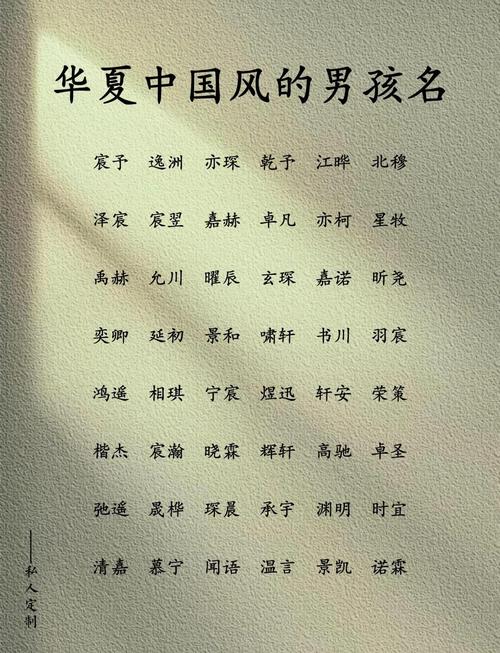 华夏中国风的男孩名
宸予 逸洲 亦琛 乾予 江晔 北穆
泽宸 宸翌 嘉赫 卓凡 亦柯 星牧
禹赫 允川 曜辰 玄琛 嘉诺 昕尧
奕卿 延初 景和 啸轩 书川 羽宸
鸿遥 相琪 宁宸 煜迅 轩安 荣策
楷杰 宸瀚 晓霖 辉轩 高驰 卓圣
弛遥 晟桦 琛晨 承宇 渊明 时宜
清嘉 慕宁 闻语 温言 景凯 诺霖
——私人定制